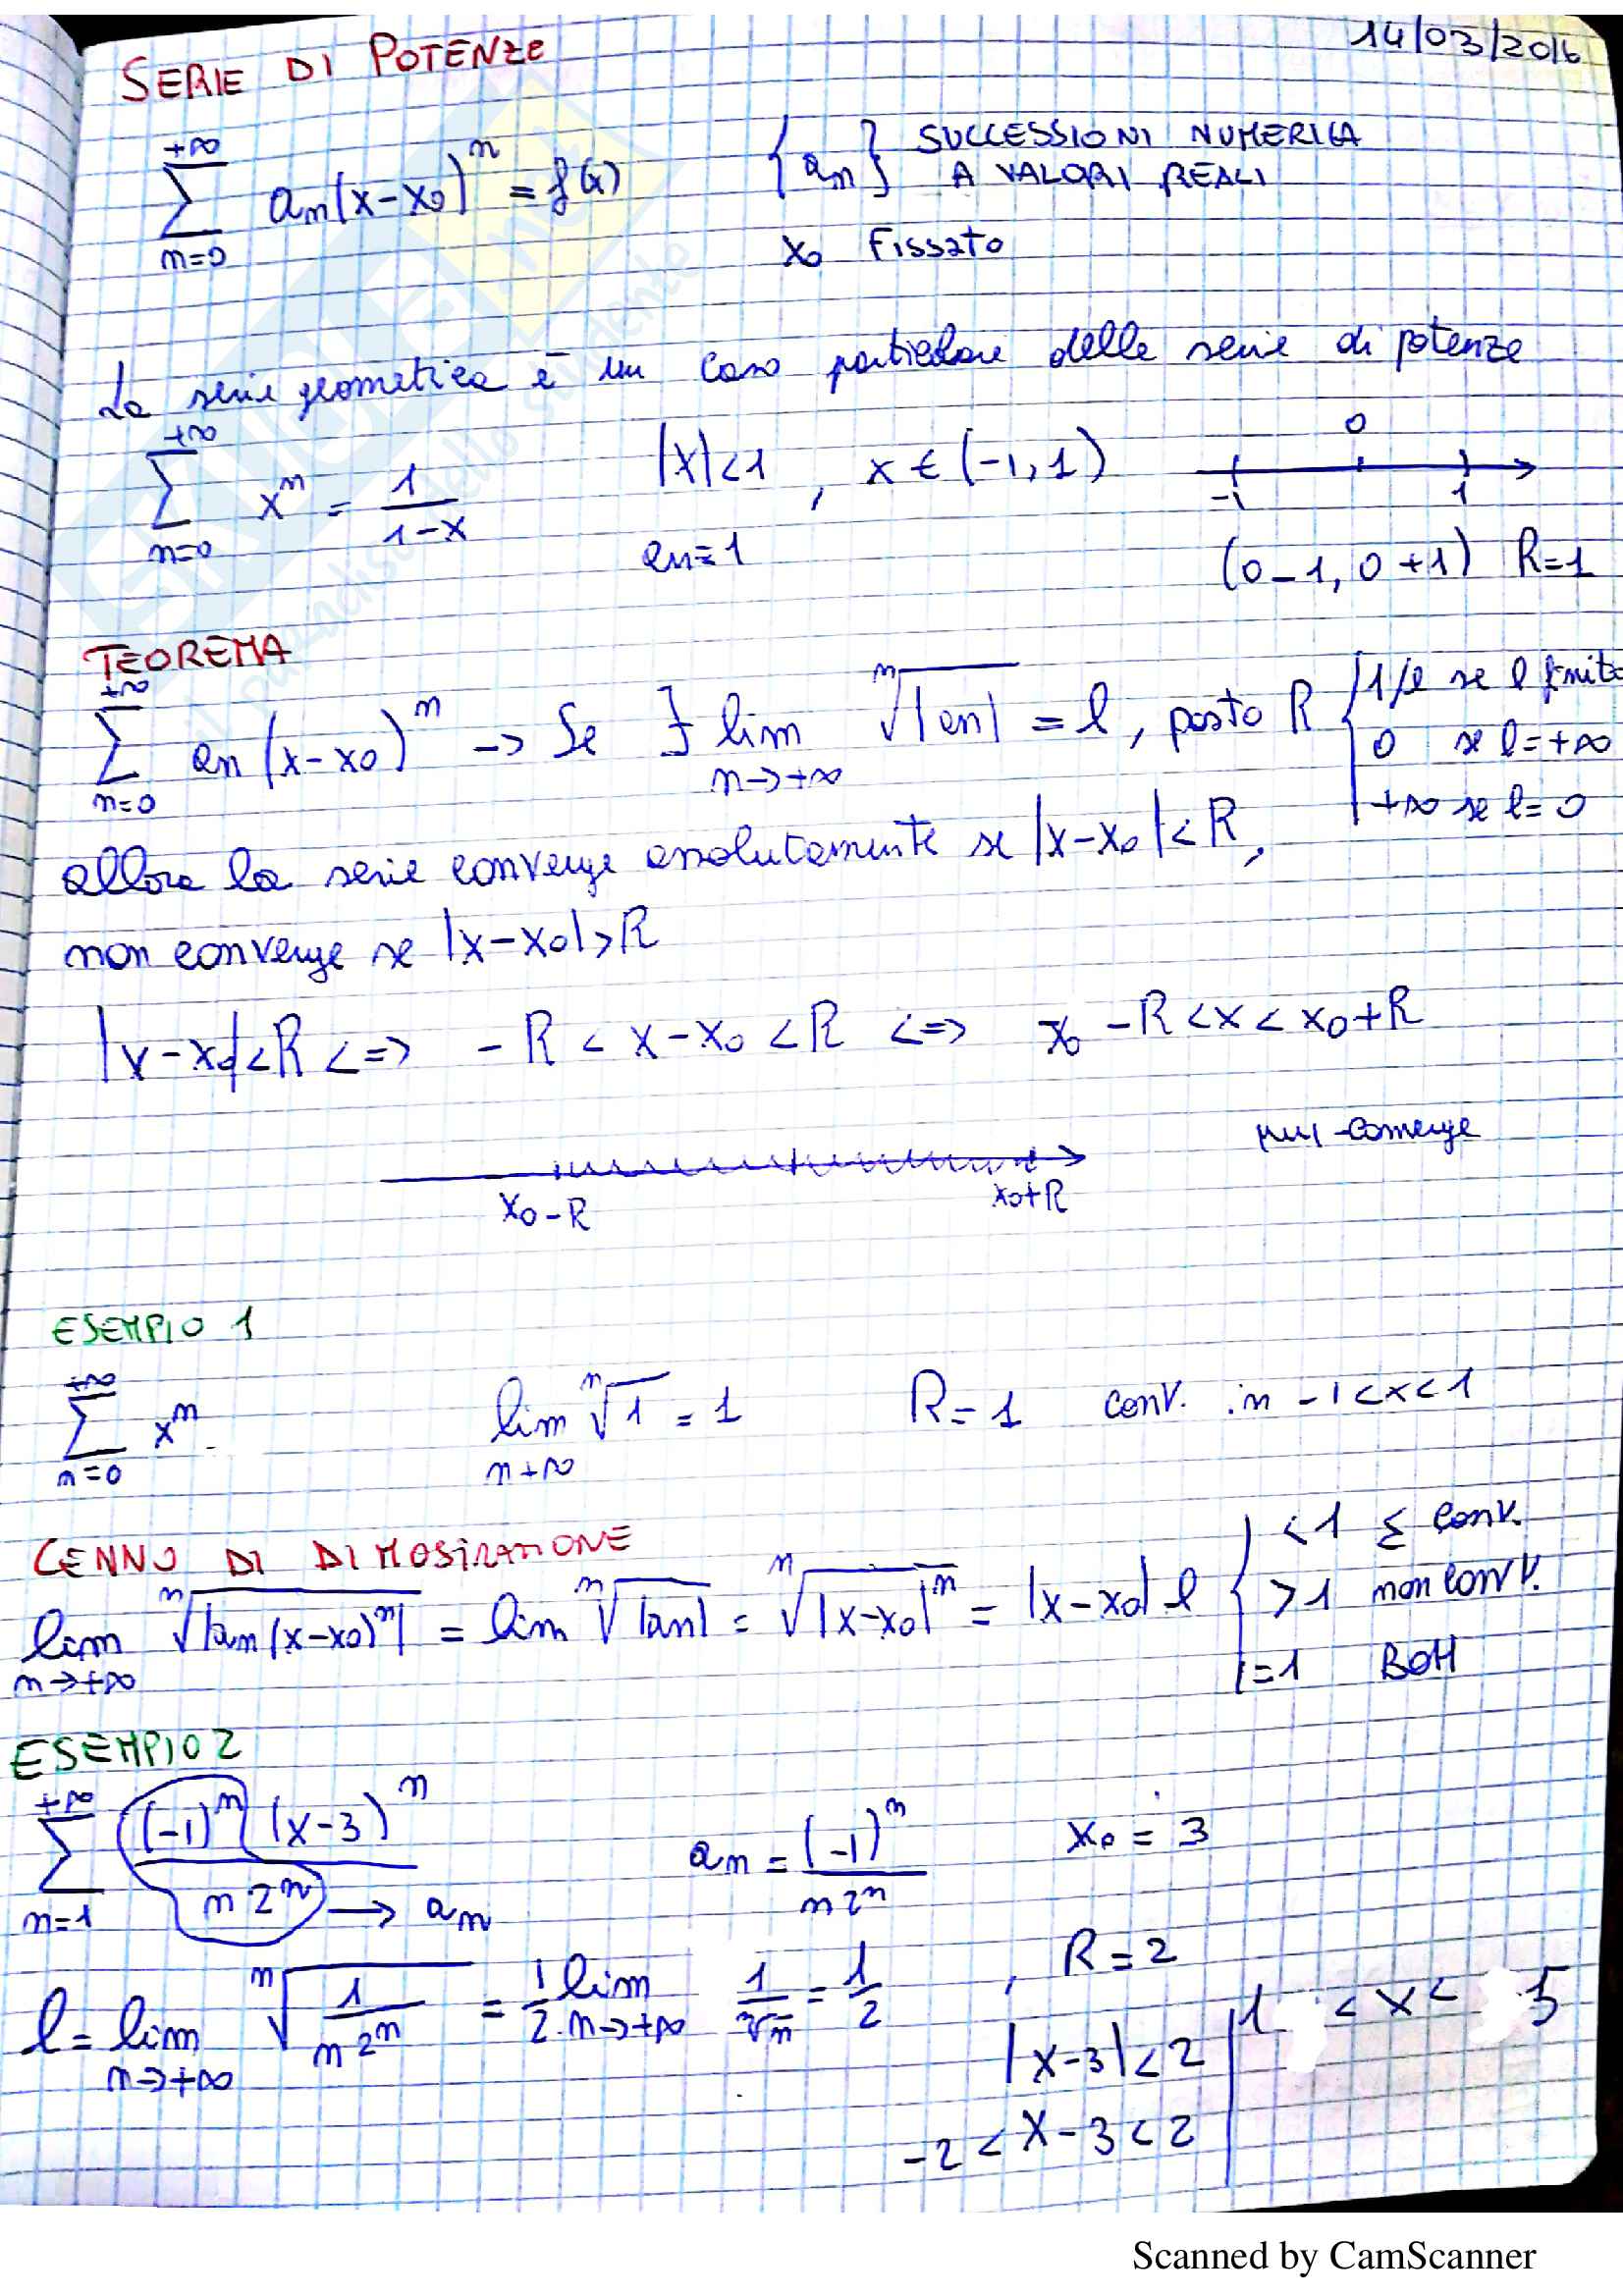 14/03/2016
SERIE DI POTENZE
+∞ ∑ n=0 an(x-x0)^n = f(x) {an} SUCCESSIONI NUMERICA
A VALORI REALI
x0 Fissato
La serie geometrica è un caso particolare delle serie di potenze
+∞ ∑ n=0 x^n = 1/(1-x) |x|<1 , x ∈ (-1,1) 0 -1 1
an=1 (0-1, 0+1) R=1
TEOREMA
+∞ ∑ n=0 an(x-x0)^n -> Se ∃ lim n->+∞ n√|an| = l, posto R { 1/l se l finito
0 se l=+∞
+∞ se l=0
allora la serie converge assolutamente se |x-x0|<R,
non converge se |x-x0|>R
|x-x0|<R <=> -R < x-x0 < R <=> x0-R < x < x0+R
converge
x0-R x0+R
ESEMPIO 1
+∞ ∑ n=0 x^n lim n+∞ n√1 = 1 R=1 conv. in -1<x<1
CENNO DI DIMOSTRAZIONE
lim n->+∞ n√|an(x-x0)^n| = lim n√|an| = n√|x-x0|^n = |x-x0| l { <1 ∑ conv.
>1 non conv.
=1 BOH
ESEMPIO 2
+∞ ∑ n=1 (-1)^n (x-3)^n / n2^n -> an an = (-1)^n / n2^n x0 = 3
l = lim n->+∞ n√(1/n2^n) = 1/2 lim n->+∞ 1/n√n = 1/2 , R=2
|x-3|<2 1 < x < 5
-2 < x-3 < 2
Scanned by CamScanner